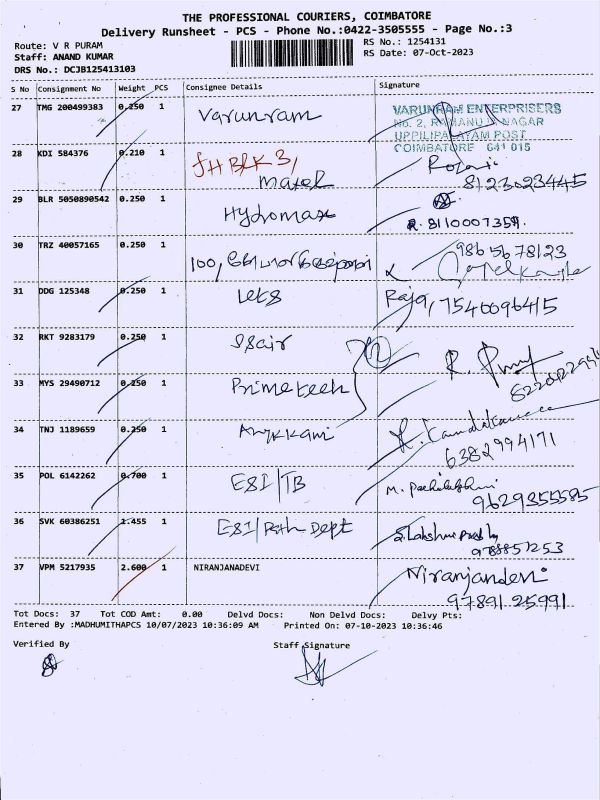 THE PROFESSIONAL COURIERS, COIMBATORE
Delivery Runsheet - PCS - Phone No.:0422-3505555 - Page No.:3
Route: V R PURAM
RS No.: 1254131
Staff: ANAND KUMAR
RS Date: 07-Oct-2023
DRS No.: DCJB125413103
S No Consignment No Weight PCS Consignee Details Signature
27 TMG 200499383 0.250 1 Varunram
VARUNRAM ENTERPRISERS
No. 2, RAMANUJ NAGAR
UPPILIPALAYAM POST
COIMBATORE 641 015
28 KDI 584376 0.210 1
8123023445
29 BLR 5050890542 0.250 1 Hydromax
R. 8110007357
30 TRZ 40057165 0.250 1 100,
9865678123
31 DDG 125348 0.250 1 Raja, 7540096415
32 RKT 9283179 0.250 1 R.
33 MYS 29490712 0.250 1 Primetech
34 TNJ 1189659 0.250 1
6382994171
35 POL 6142262 0.700 1 ESI/TB M.
9629355585
36 SVK 60386251 1.455 1 ESI/Path Dept
37 VPM 5217935 2.600 1 NIRANJANADEVI Niranjandevi
97891 25991
Tot Docs: 37 Tot COD Amt: 0.00 Delvd Docs: Non Delvd Docs: Delvy Pts:
Entered By :MADHUMITHAPCS 10/07/2023 10:36:09 AM Printed On: 07-10-2023 10:36:46
Verified By Staff Signature